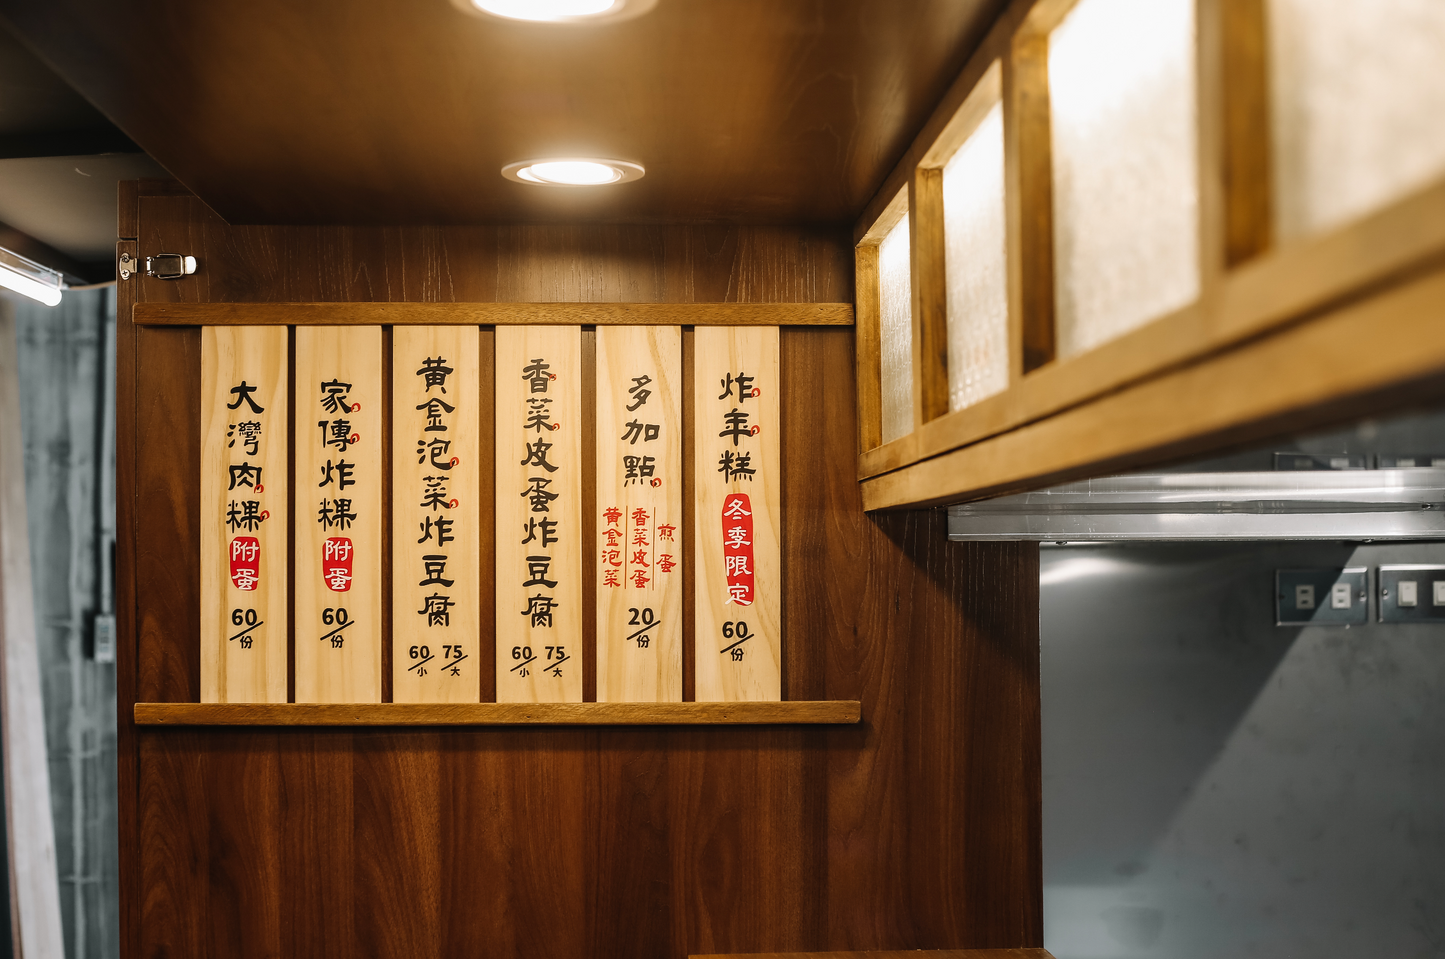 大灣肉粿
附蛋
60/份
家傳炸粿
附蛋
60/份
黃金泡菜炸豆腐
60/小 75/大
香菜皮蛋炸豆腐
60/小 75/大
多加點
黃金泡菜
香菜皮蛋
煎蛋
20/份
炸年糕
冬季限定
60/份